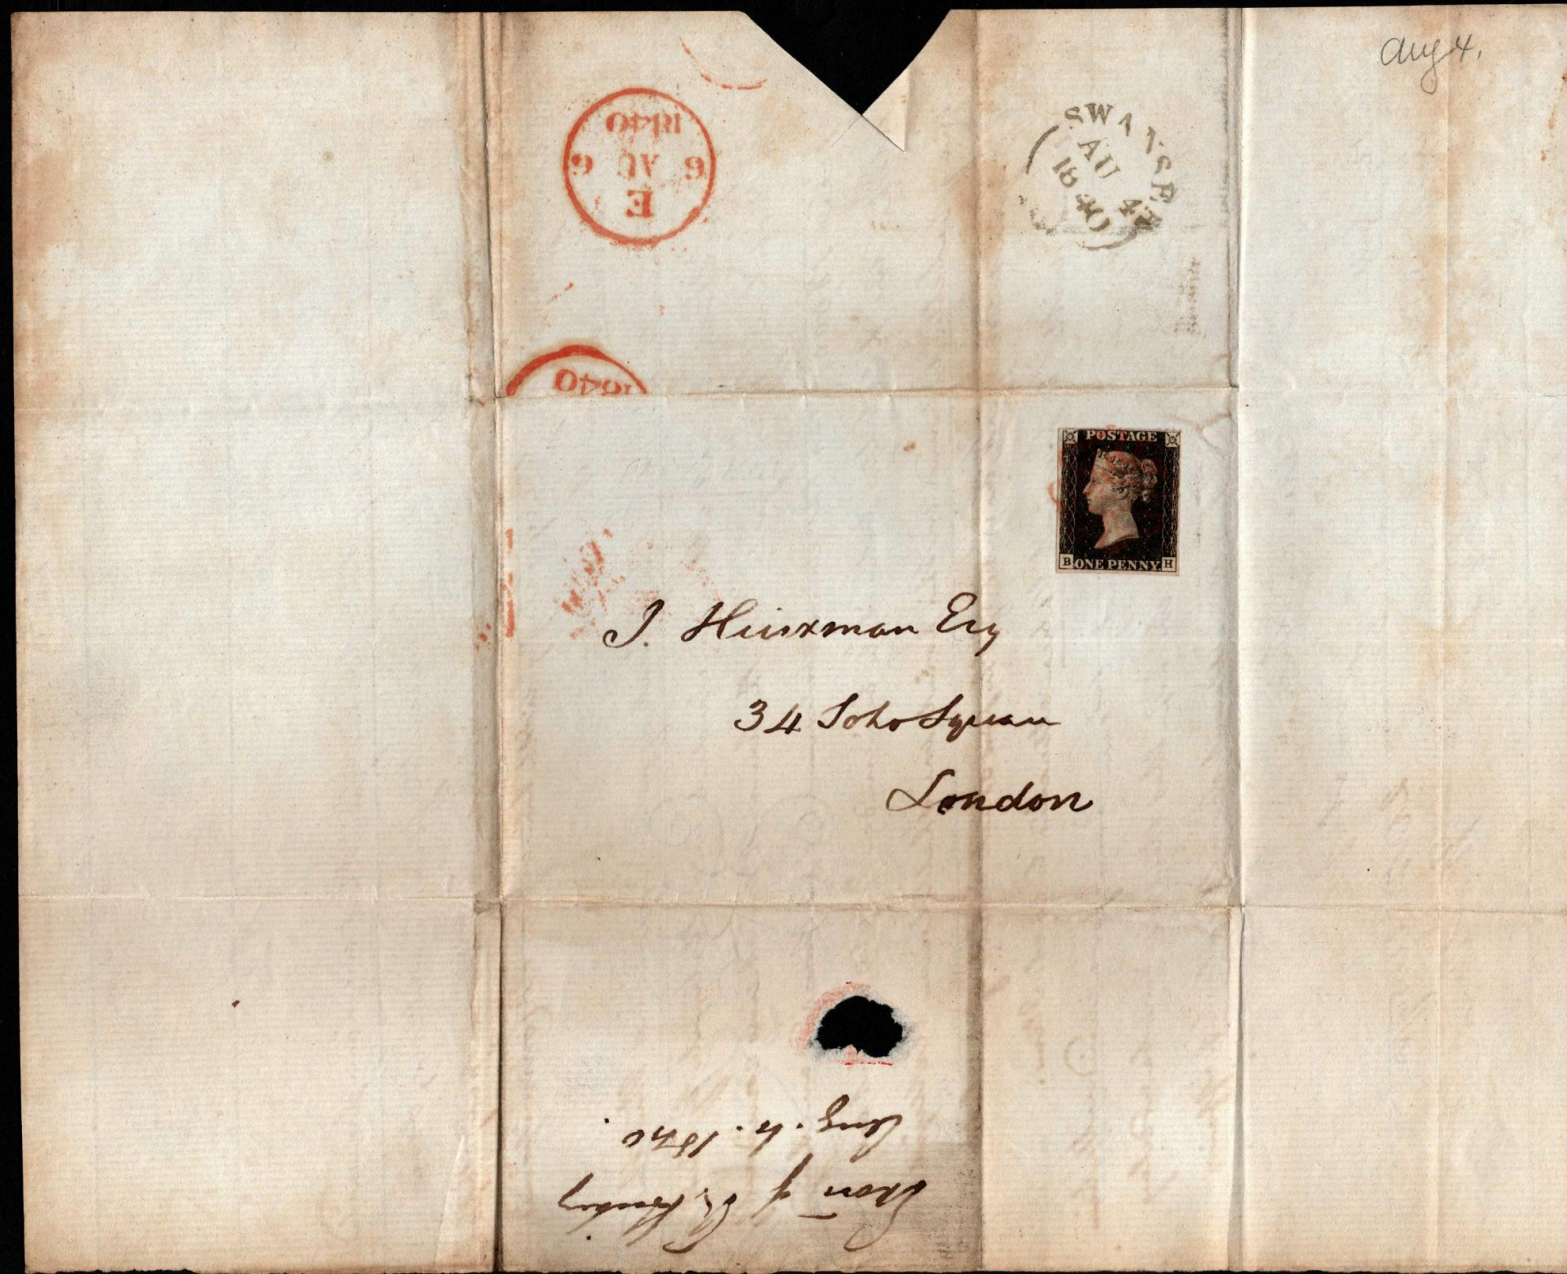 Aug 4.
SWANSEA
AU 4
1840
E
6 AU 6
1840
1840
POSTAGE
B ONE PENNY H
J. Hinxman Esq
34 Soho Square
London
Aug. 4. 1840.